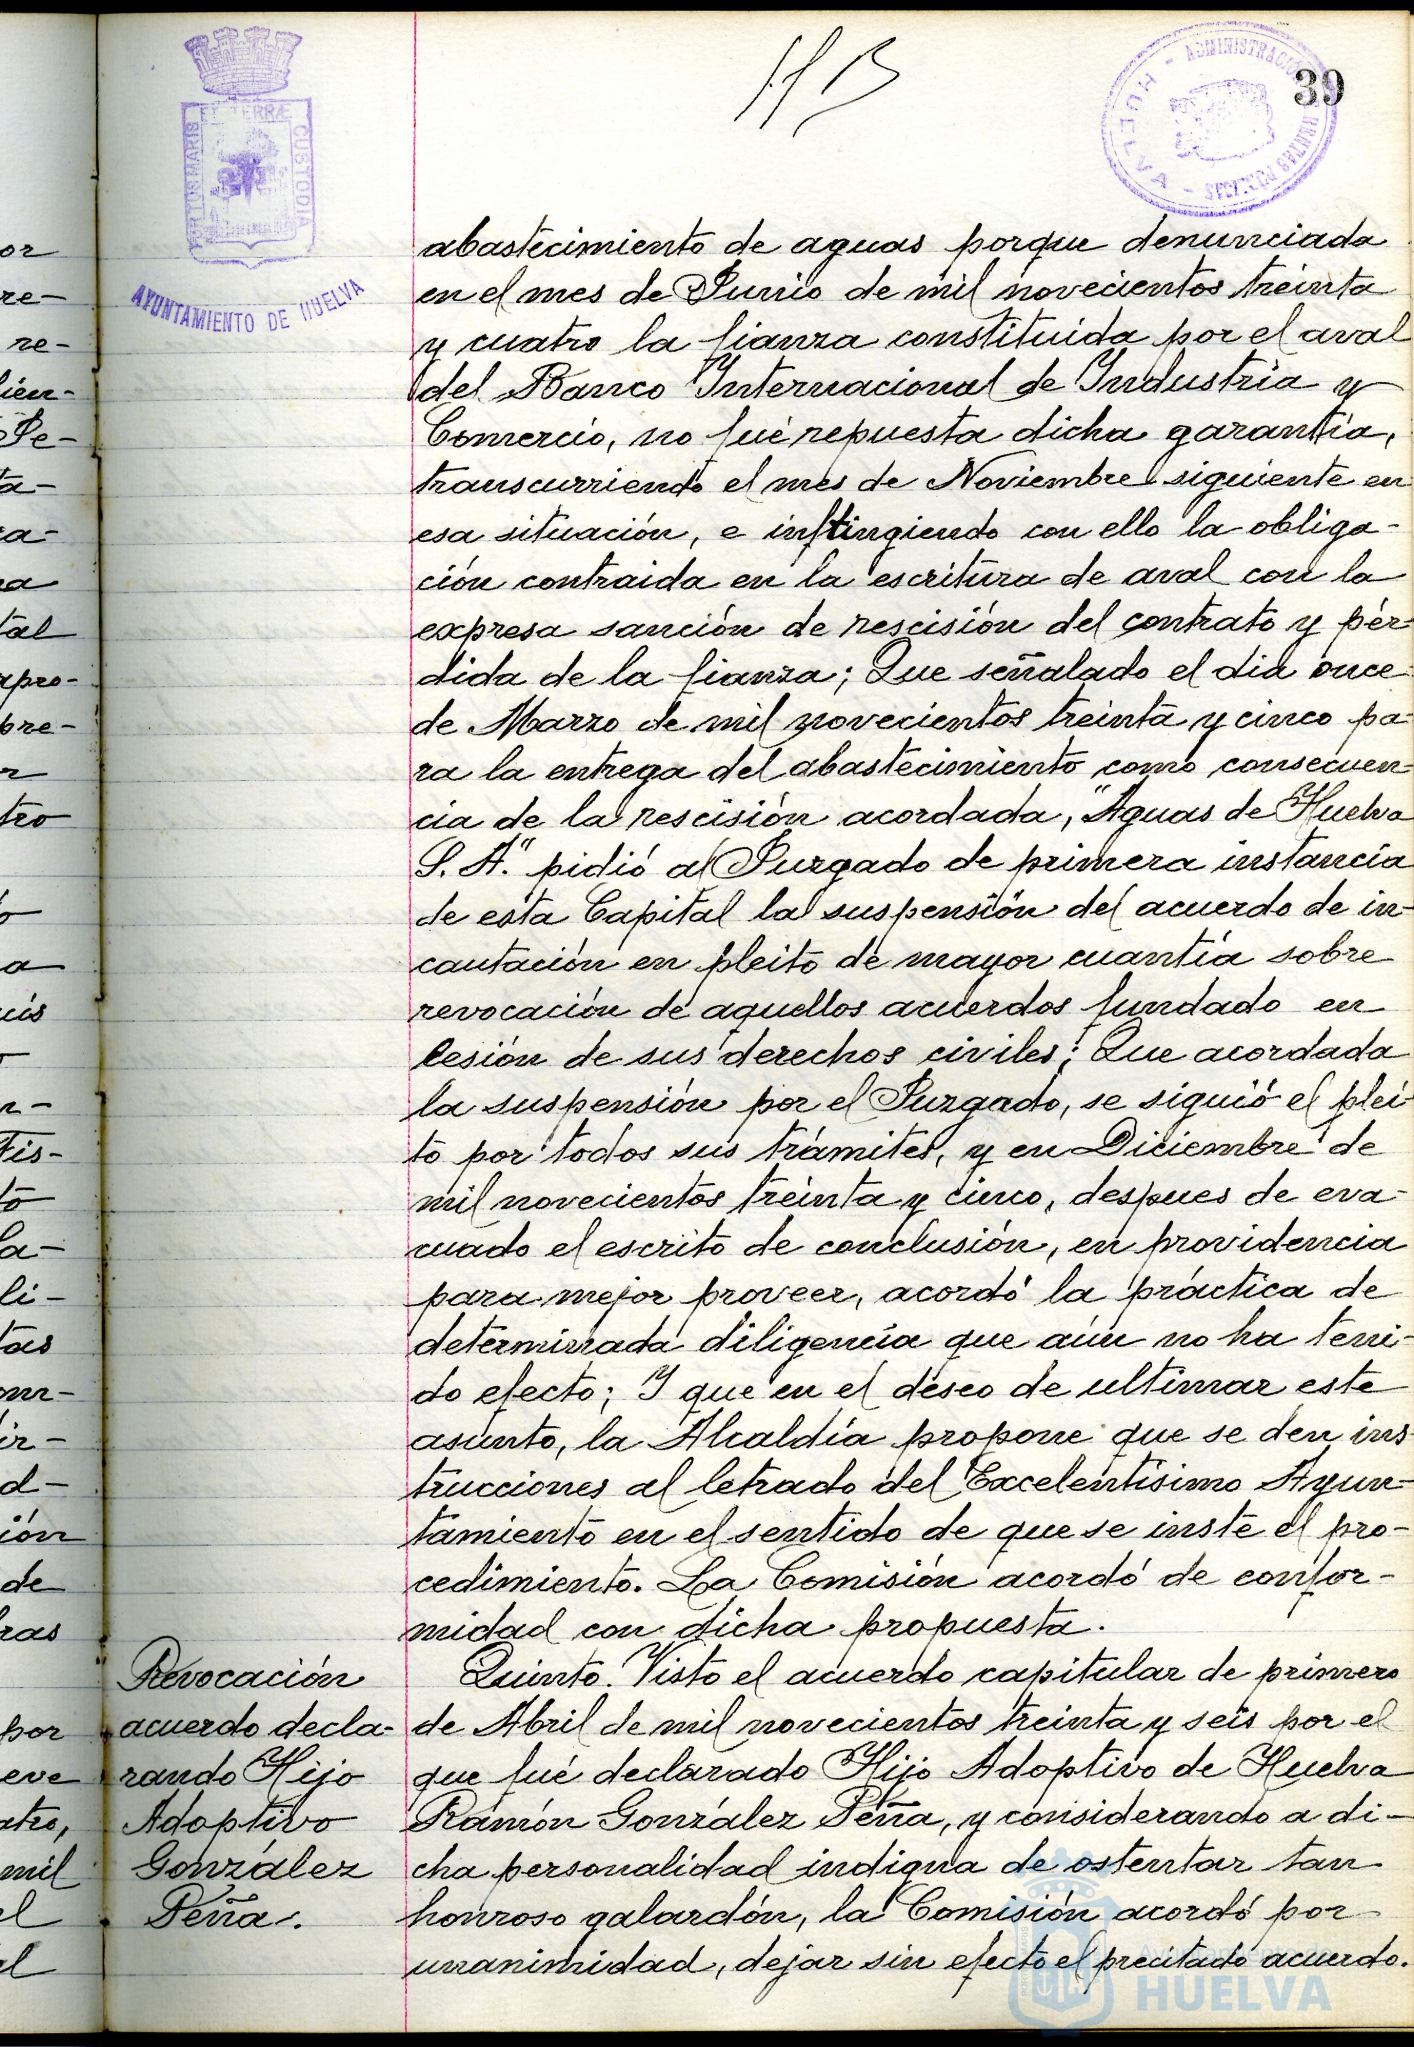 39
PORTUS MARIS ET TERRÆ CUSTODIA
AYUNTAMIENTO DE HUELVA
ADMINISTRACIÓN RENTAS PÚBLICAS - HUELVA -
abastecimiento de aguas porque denunciada
en el mes de Junio de mil novecientos treinta
y cuatro la fianza constituida por el aval
del Banco Internacional de Industria y
Comercio, no fué repuesta dicha garantía,
transcurriendo el mes de Noviembre siguiente en
esa situación, e infringiendo con ello la obliga-
ción contraida en la escritura de aval con la
expresa sanción de rescisión del contrato y pér-
dida de la fianza; Que señalado el dia once
de Marzo de mil novecientos treinta y cinco pa-
ra la entrega del abastecimiento como consecuen-
cia de la rescisión acordada, "Aguas de Huelva
S. A." pidió al Juzgado de primera instancia
de esta Capital la suspensión del acuerdo de in-
cautación en pleito de mayor cuantía sobre
revocación de aquellos acuerdos fundado en
lesión de sus derechos civiles; Que acordada
la suspensión por el Juzgado, se siguió el plei-
to por todos sus trámites, y en Diciembre de
mil novecientos treinta y cinco, despues de eva-
cuado el escrito de conclusión, en providencia
para mejor proveer, acordó la práctica de
determinada diligencia que aún no ha teni-
do efecto; Y que en el deseo de ultimar este
asunto, la Alcaldía propone que se den ins-
trucciones al letrado del Excelentísimo Ayun-
tamiento en el sentido de que se inste el pro-
cedimiento. La Comisión acordó de confor-
midad con dicha propuesta.
Revocación
acuerdo decla-
rando Hijo
Adoptivo
González
Peña.
Quinto. Visto el acuerdo capitular de primero
de Abril de mil novecientos treinta y seis por el
que fué declarado Hijo Adoptivo de Huelva
Ramón González Peña, y considerando a di-
cha personalidad indigna de ostentar tan
honroso galardón, la Comisión acordó por
unanimidad, dejar sin efecto el precitado acuerdo.
HUELVA